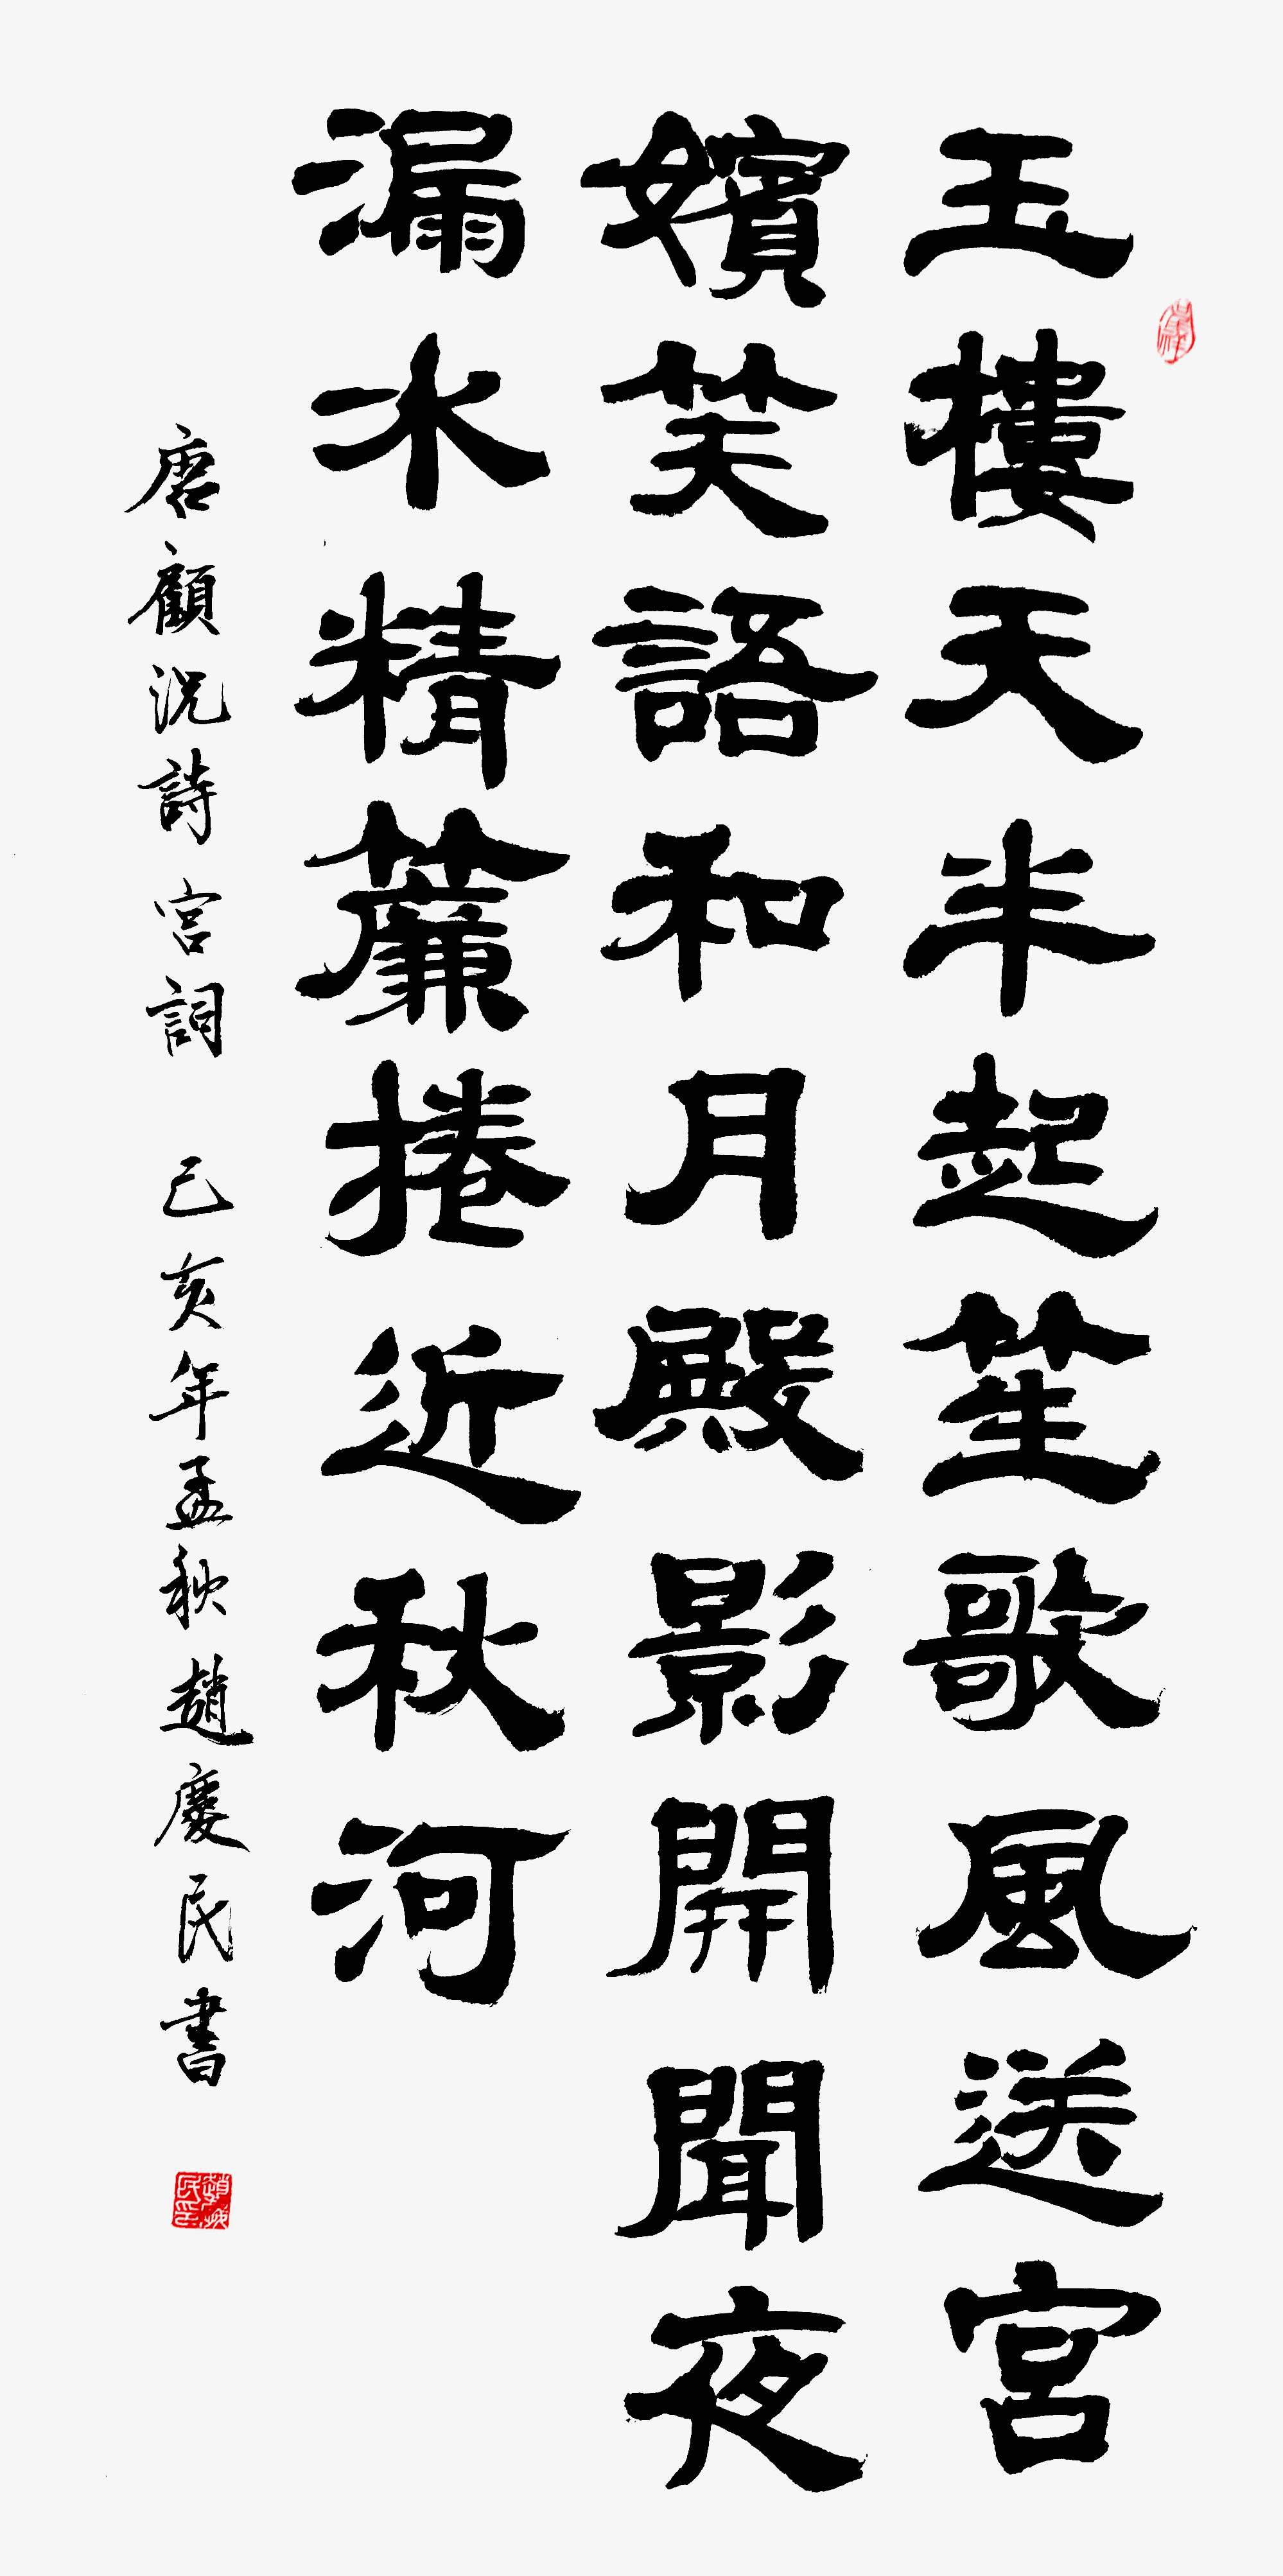 玉樓天半起笙歌風送宮
嬪笑語和月殿影開聞夜
漏水精簾捲近秋河
唐顧況詩宮詞 己亥年孟秋趙慶民書